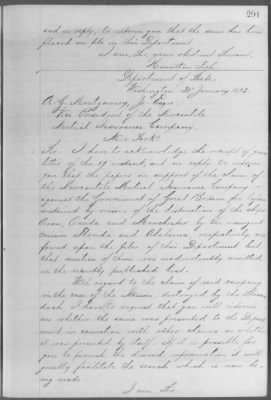 291
and in reply, to inform you that the same has been
placed on file in this Department.
I am, Sir, your obedient Servant,
Hamilton Fish
Department of State.
Washington 21 January 1873.
A. G. Montgomery, Jr. Esqre.
Vice President of the Mercantile
Mutual Insurance Company.
New York.
Sir. I have to acknowledge the receipt of your
letter of the 17 instant, and in reply to inform
you that the papers in support of the claim of
the Mercantile Mutual Insurance Company
against the Government of Great Britain for losses
sustained by reason of the destruction of the ships
Avon, and Manchester by the
cruisers Florida and Alabama respectively, are
found upon the files of this Department but
that mention of them was inadvertently omitted
in the recently published list.
With regard to the claim of said company
in the case of the destroyed by the Shenan-
doah I have to request that you will inform
me whether the same was presented to the Depart-
ment in connection with other claims or whether
it was presented by itself. If it is possible for
you to furnish the desired information it will
greatly facilitate the search which is now be-
ing made.
I am, Sir